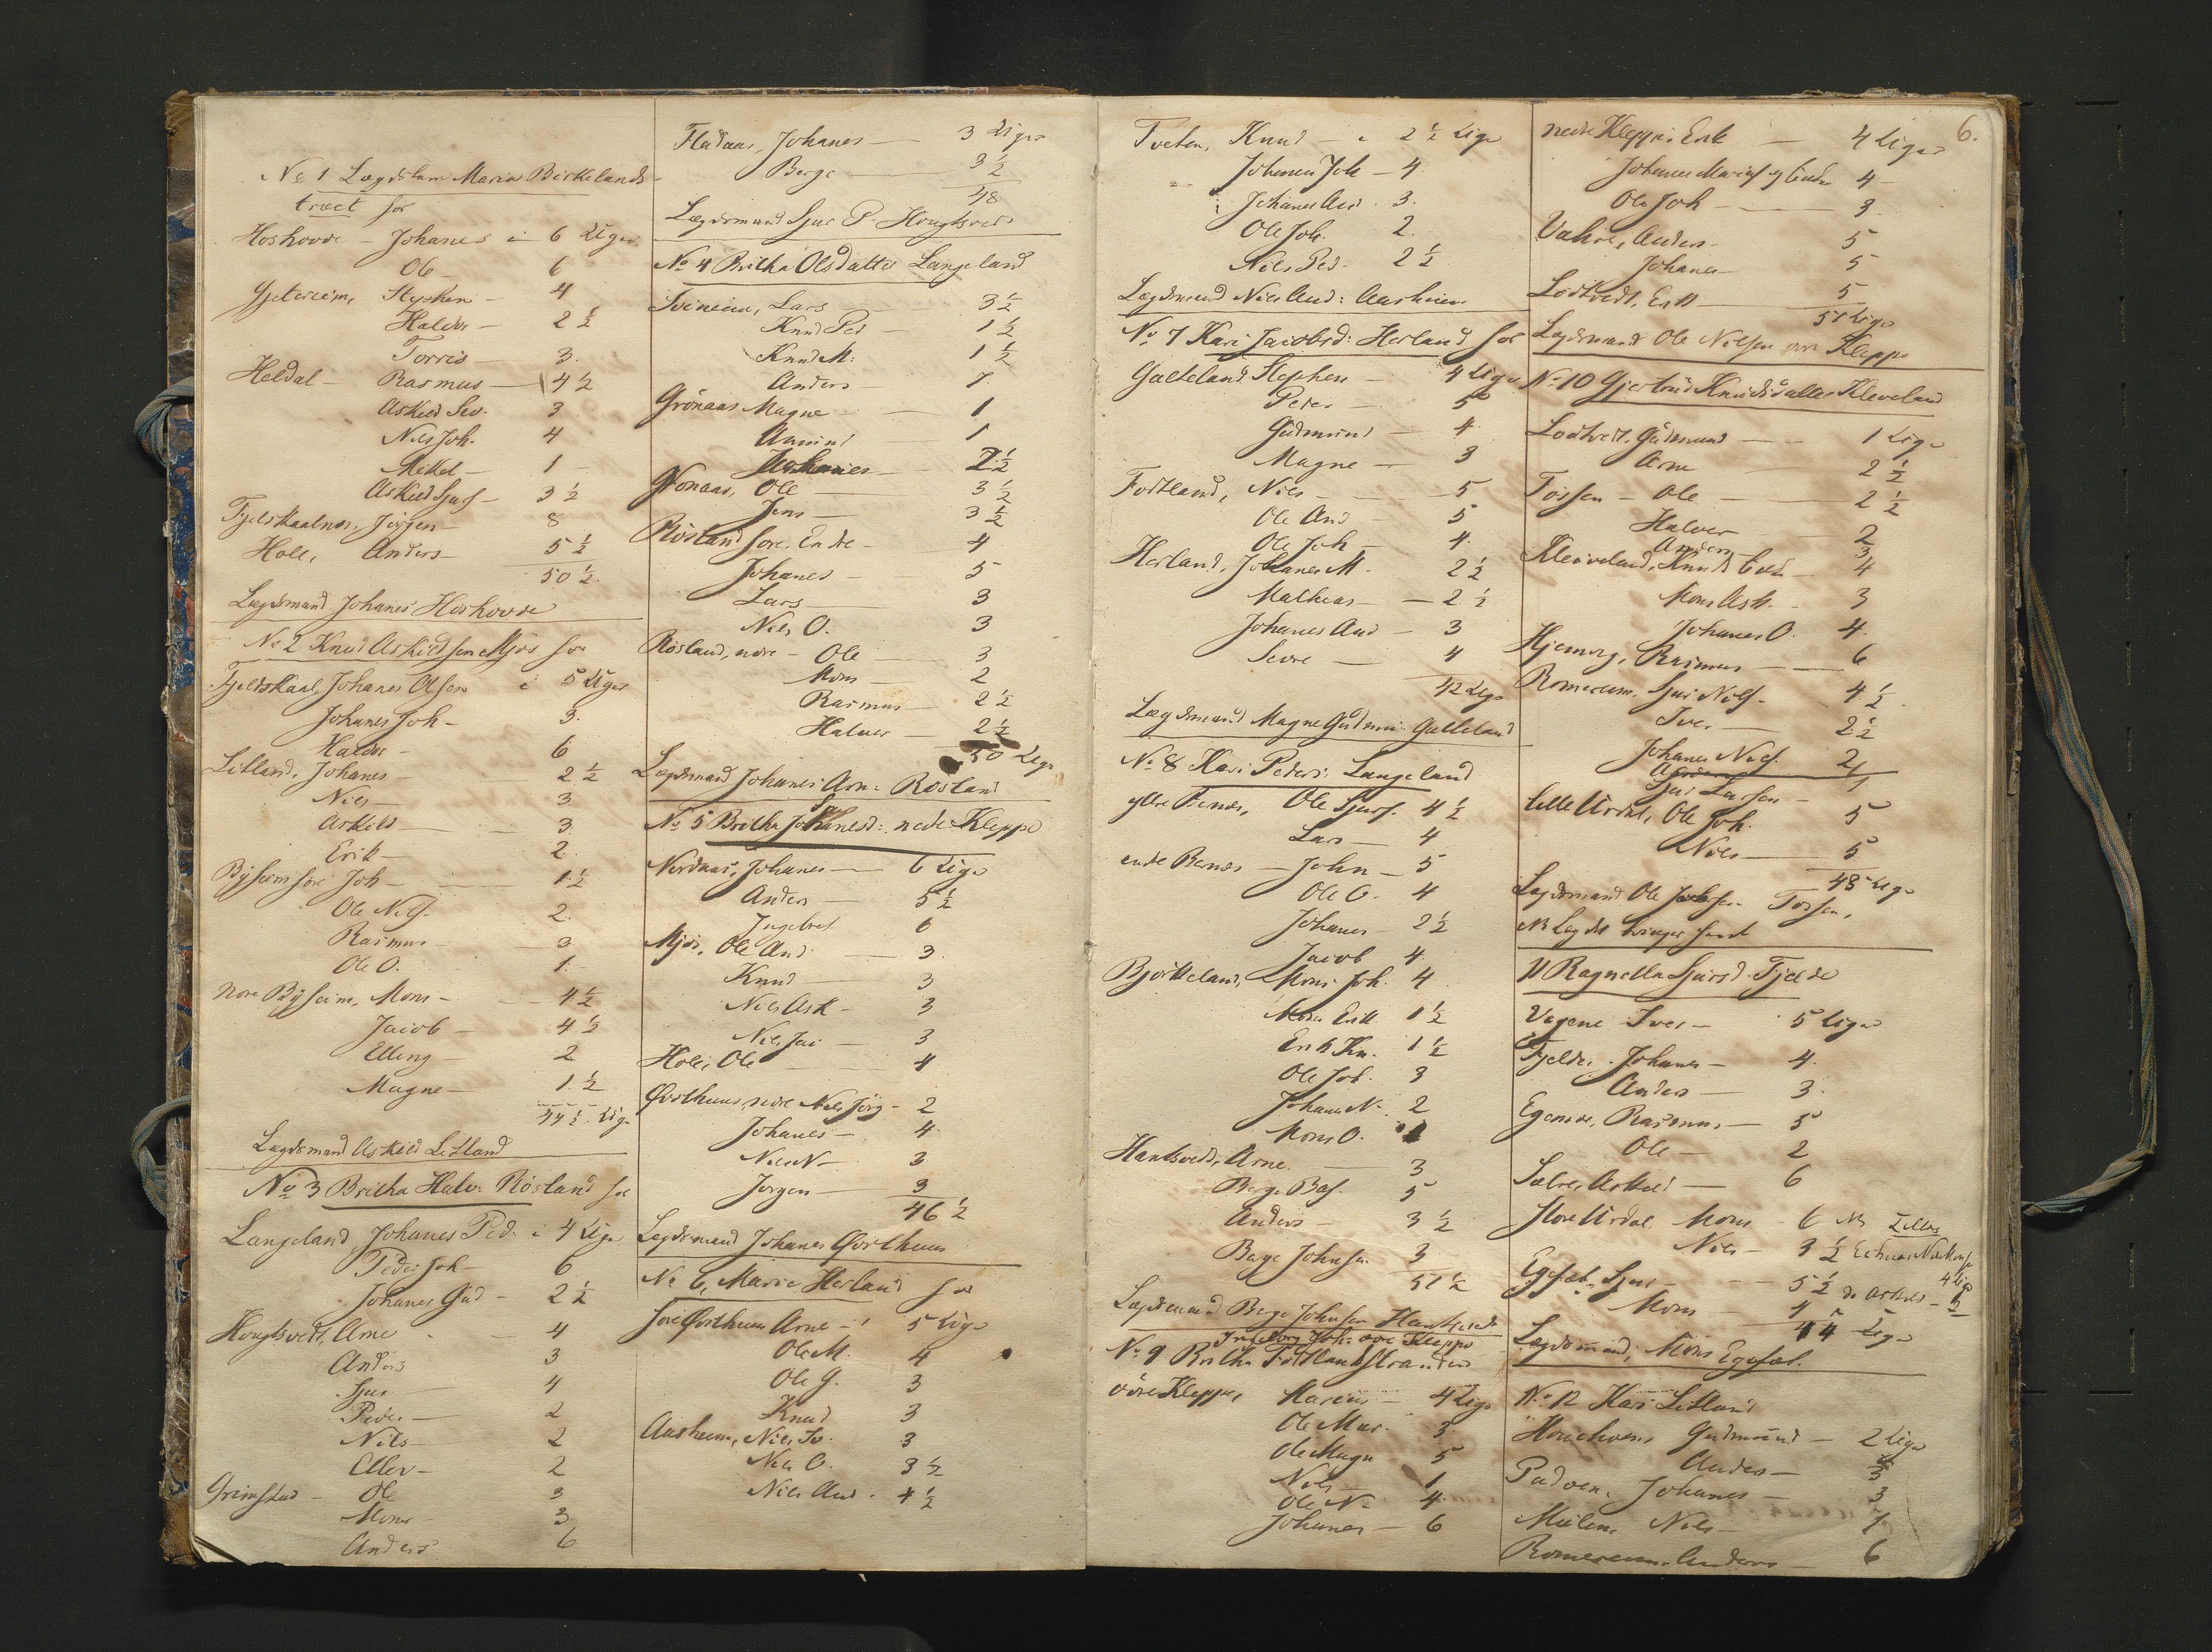 No 1 Lægdslem Maria Birkelands-
træet for
Hoshovde - Johanes à 6 Liger
Ole - 6
Gjetereim, Stephen - 4
Haldor - 2 ½
Torris - 3.
Heldal - Rasmus - 4 ½
Askild Sev. 3
Nils Joh. 4
Mikel - 1 -
Askild Sjurs - 3 ½
Fjeldskaalnes, Jörgen - 8
Hole, Anders - 5 ½
50 ½.
Lægdsmand Johanes Hoshovde
No 2 Knud Askildsen Mjös for
Fjeldskaal, Johanes Olsen à 5 Liger
Johanes Joh - 3.
Haldor - 6
Litland, Johanes - 2 ½
Nils - 3
Askild - 3.
Erik - 2.
Byseim söre Joh - 1 ½
Ole Nils. 2.
Rasmus - 3
Ole O. 1. -
nore Byseim, Mons - 4 ½
Jacob - 4 ½
Elling - 2
Magne - 1 ½
44 ½ Lige
Lægdsmand Askild Litland
No 3 Britha Halv: Rösland for
Langeland Johanes Ped. à 4 Lige
Peder Joh - 6
Johanes Gud - 2 ½
Hougtsvedt, Arne - 4
Anders 3
Sjur 4
Peder - 2
Nils - 2
Eller - 2
Grimstad - Ole 3
Mons - 3
Anders 6
Fladaas, Johanes - 3 Liger
Berge - 3 ½
48
Lægdsmand Sjur P. Hougtsvedt
No 4 Britha Olsdatter Langeland
Sveineim, Lars 3 ½
Knud Ped - 1 ½
Knud M: 1 ½
Anders - 7.
Grönaas Magne - 1
Amund 1
Johanes - 2 ½
Grönaas, Ole - 3 ½
Jens - 3 ½
Rösland söre, Endre - 4
Johanes - 5
Lars - 3
Nils O. 3
Rösland, nore - Ole - 3
Mons - 2
Rasmus - 2 ½
Halver - 2 ½
50 Lige
Lægdsmand Johanes Arn: Rösland
No 5 Britha Johanesd: nedre Kleppe
Nordaas, Johanes - 6 Lige
Anders - 5 ½
Ingebret 6
Mjös, Ole And - 3.
Knud - 3
Nils Ask - 3
Nils Jac - 3
Hole, Ole - 4
Östhuus, nore Nils Jörg - 2
Johanes - 4
Nils N - 3
Jörgen - 3
46 ½
Lægdsmand Johanes Östhuus
No 6, Marie Herland for
söre Östhuus Arne - 5 Lige
Ole M. 4
Ole G. 3
Knud 3
Aasheim, Nils Jo. 3
Nils O. 3 ½
Nils And. 4 ½
6.
Tveten, Knud - à 2 ½ Lige
Johanes Joh - 4
Johanes And. 3.
Ole Joh. 2.
Nils Ped - 2 ½
Lægdsmand Nils And: Aasheim
No 7 Kari Jacobsd: Herland for
Galteland Stephen - 4 Lige
Peder - 5
Gudmund - 4.
Magne - 3
Fortland, Nils - 5
Ole And 5
Ole Joh - 4
Herland, Johanes M. 2 ½
Mathias - 2 ½
Johanes And - 3
Sevre - 4
42 Lige
Lægdsmand Magne Gudmun: Galteland
No 8 Kari Peders: Langeland
yttre Bernes, Ole Sjurs. 4 ½
Lars - 4
indre Bernes - John - 5
Ole O. 4
Johanes - 2 ½
Jacob 4
Björkeland, Mons Joh. 4
Mons Erik 1 ½
Erik Kn. 1 ½
Ole Joh. 3
Johanes N. 2
Mons O.
Hantsvedt, Arne 3
Berge Baf. 5
Anders - 3 ½
Berge Johnsen 3
51 ½
Lægdsmand Berge Johnsen Hantsvedt
Ingeborg Joh: övre Kleppe
No 9 Britha Fortlandstranden
övre Kleppe, Marius - 4 Lige
Ole Mar. 3.
Ole Magn 5
Nils - 1
Ole N. 4.
Johanes - 6
nedre Kleppe, Erik - 4 Liger
Johanes Mariusf og Enken 4 -
Ole Joh - 3.
Vahre, Anders - 5
Johanes 5
Lodtvedt, Erik - 5
51 Lige
Lægdsmand Ole Nilsen övre Kleppe
No 10 Gjertrud Knudsdatter Kleveland
Lodtvedt, Gudmund - 1 Lige
Arne 2 ½
Tössen - Ole - 2 ½
Halver 2
Anders 3
Kleiveland, Knuds Enke - 4
Mons Ask. 3
Johanes O. 4.
Hjemvig, Rasmus - 6
Romereim, Sjur Nils. 4 ½
Iver - 2 ½
Johanes Nils. 2
Sjur Larsen - 1
lille Urdal, Ole Joh. 5
Nils - 5
48 Lige
Lægdsmand Ole Jacobsen Tössen,
11 Ragnilla Sjursd. Fjelde
Vegene Iver - 5 Liger
Fjelde, Johanes - 4.
Anders - 3.
Egenes, Rasmus - 5
Ole - 2
Sælve, Askild - 6
store Urdal, Mons - 6
Nils - 3 ½
Egesæt, Sjur - 5 ½ do Askild - 2
Mons - 4
44 Lige
Lægdsmand, Mons Egesæt.
No 12 Kari Litland
Gudmund - 2 Lige
Anders -
Johanes - 3
Nils -
Romereim Anders - 6